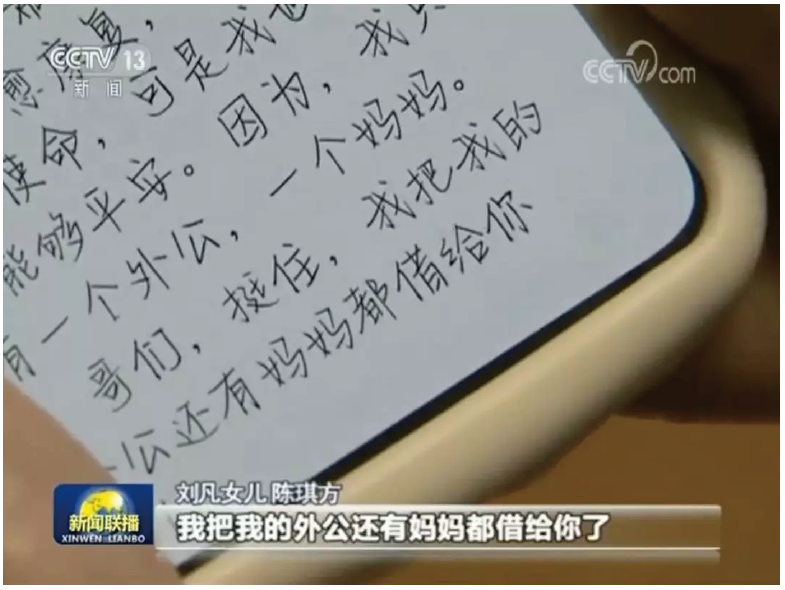 CCTV 13
新闻
CCTV.com
愈康复，
使命，可是我也
能够平安。因为，我只
有一个外公，一个妈妈。
哥们，挺住，我把我的
公还有妈妈都借给你
刘凡女儿 陈琪方
新闻联播
XINWEN LIANBO
我把我的外公还有妈妈都借给你了